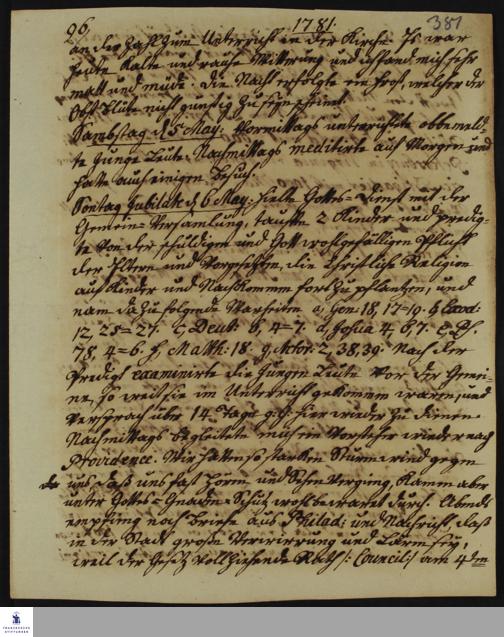 26. 1781. 381
an der Zahl zum Unterricht in der Kirche. Es war
heute kalte und rauhe Witterung und ich fand mich sehr
matt und müde. Die Nacht erfolgte ein Frost, welcher der
Obst Blüte nicht günstig zu seyn scheint.
Sambstag d 5 May: Vormittags unterrichtete obbemeld-
te junge Leute. Nachmittags meditirte auf Morgen und
hatte auch einigen Besuch.
Sontag Jubilate d 6 May: hielte Gottes-Dienst mit der
Gemein-Versamlung, taufte 2 Kinder und predig-
te von der schuldigen und Gott wohlgefälligen Pflicht
der Eltern und Vorgesetzten, die Christliche Religion
auf Kinder und Nachkommen fort zu pflantzen, und
nam dazu folgende Warheiten a, Gen: 18, 17-19. b, Exod:
12, 25-27. c, Deut: 6, 4-7. d, Josua 4, 6,7. e, Ps.
78, 4-6. f, Matth: 18. g, Actor: 2, 38,39. Nach der
Predigt examinirte die jungen Leute vor der Gemei-
ne, so weit sie im Unterricht gekommen waren, und
versprach über 14 Tage g. G. hier wieder zu dienen.
Nachmittags begleitete mich ein Vorsteher wieder nach
Providence. Wir hatten so starken Sturmwind gegen
uns, daß uns fast Hören und Sehen verging, kamen aber
unter Gottes Gnaden-Schutz wohlbewaret durch. Abends
empfing noch Briefe aus Philad: und Nachricht, daß
in der Stadt große Verwirrung und Lärm sey,
weil der Gesetz vollziehende Rath /: Council :/ am 4ten
FRANCKESCHE STIFTUNGEN